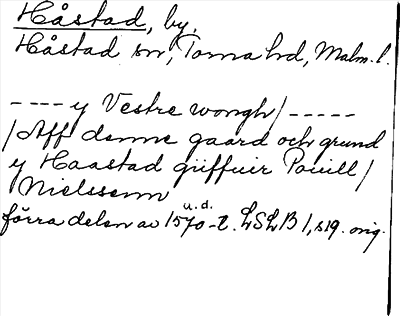 Håstad, by.
Håstad sn, Torna hd, Malm. l.
---- y Vestre wongh / -----
/ Aff denne gaard och grund
y Haastad giiffuir Pouill /
Nielssenn
u. d.
förra delen av 1570-t. LSLB 1, s19. orig.